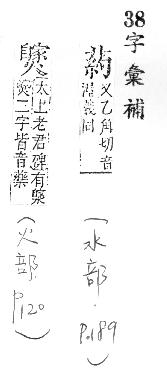 38 字彙補
又乙角切音
渥義同
(水部. P.189)
太上老君碑有
二字皆音
(火部. P.120)